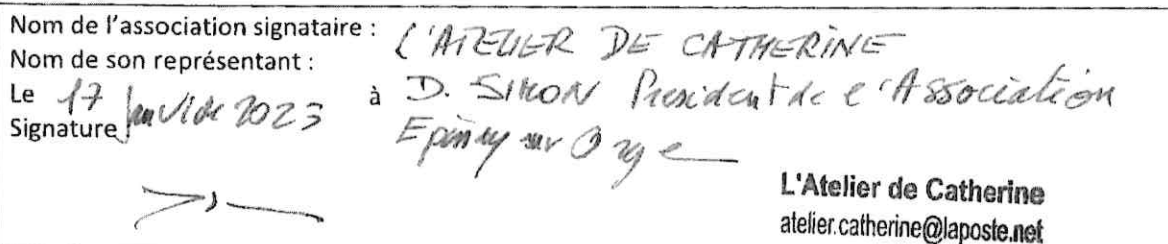 Nom de l'association signataire : L'ATELIER DE CATHERINE
Nom de son représentant : D. SIMON Président de l'Association
Le 17 Janvier 2023 à Epinay sur Orge
Signature
L'Atelier de Catherine
atelier.catherine@laposte.net